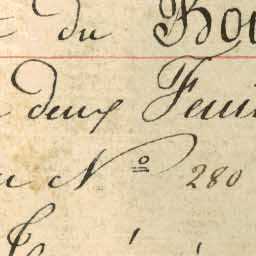 du Bo
deux Feui
Nº 280